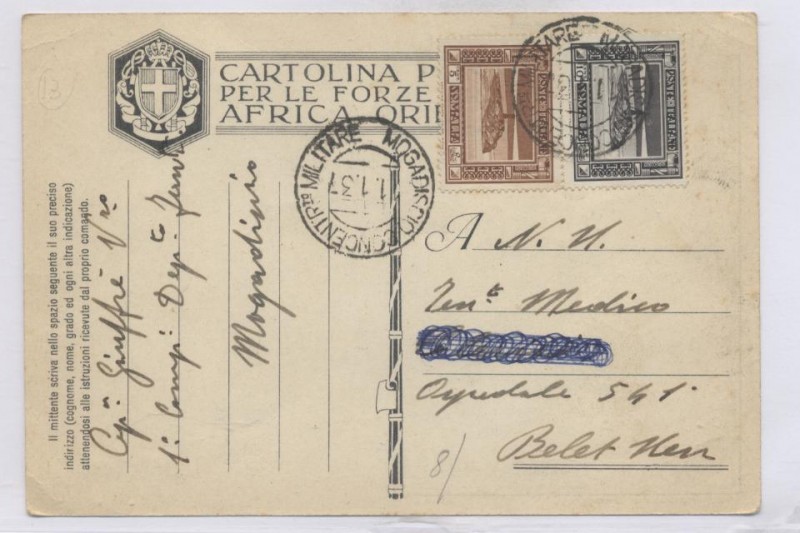 CARTOLINA P
PER LE FORZE
AFRICA ORIE
POSTE ITALIANE
SOMALIA
POSTE ITALIANE
SOMALIA
MOGADISCIO CONCENTRTO MILITARE
1.1.37
Il mittente scriva nello spazio seguente il suo preciso
indirizzo (cognome, nome, grado ed ogni altra indicazione)
attenendosi alle istruzioni ricevute dal proprio comando.
Giuffrè
1ª Comp.
Mogadiscio
A N. H.
Tente Medico
Ospedale 541
Belet Uen
8/
13